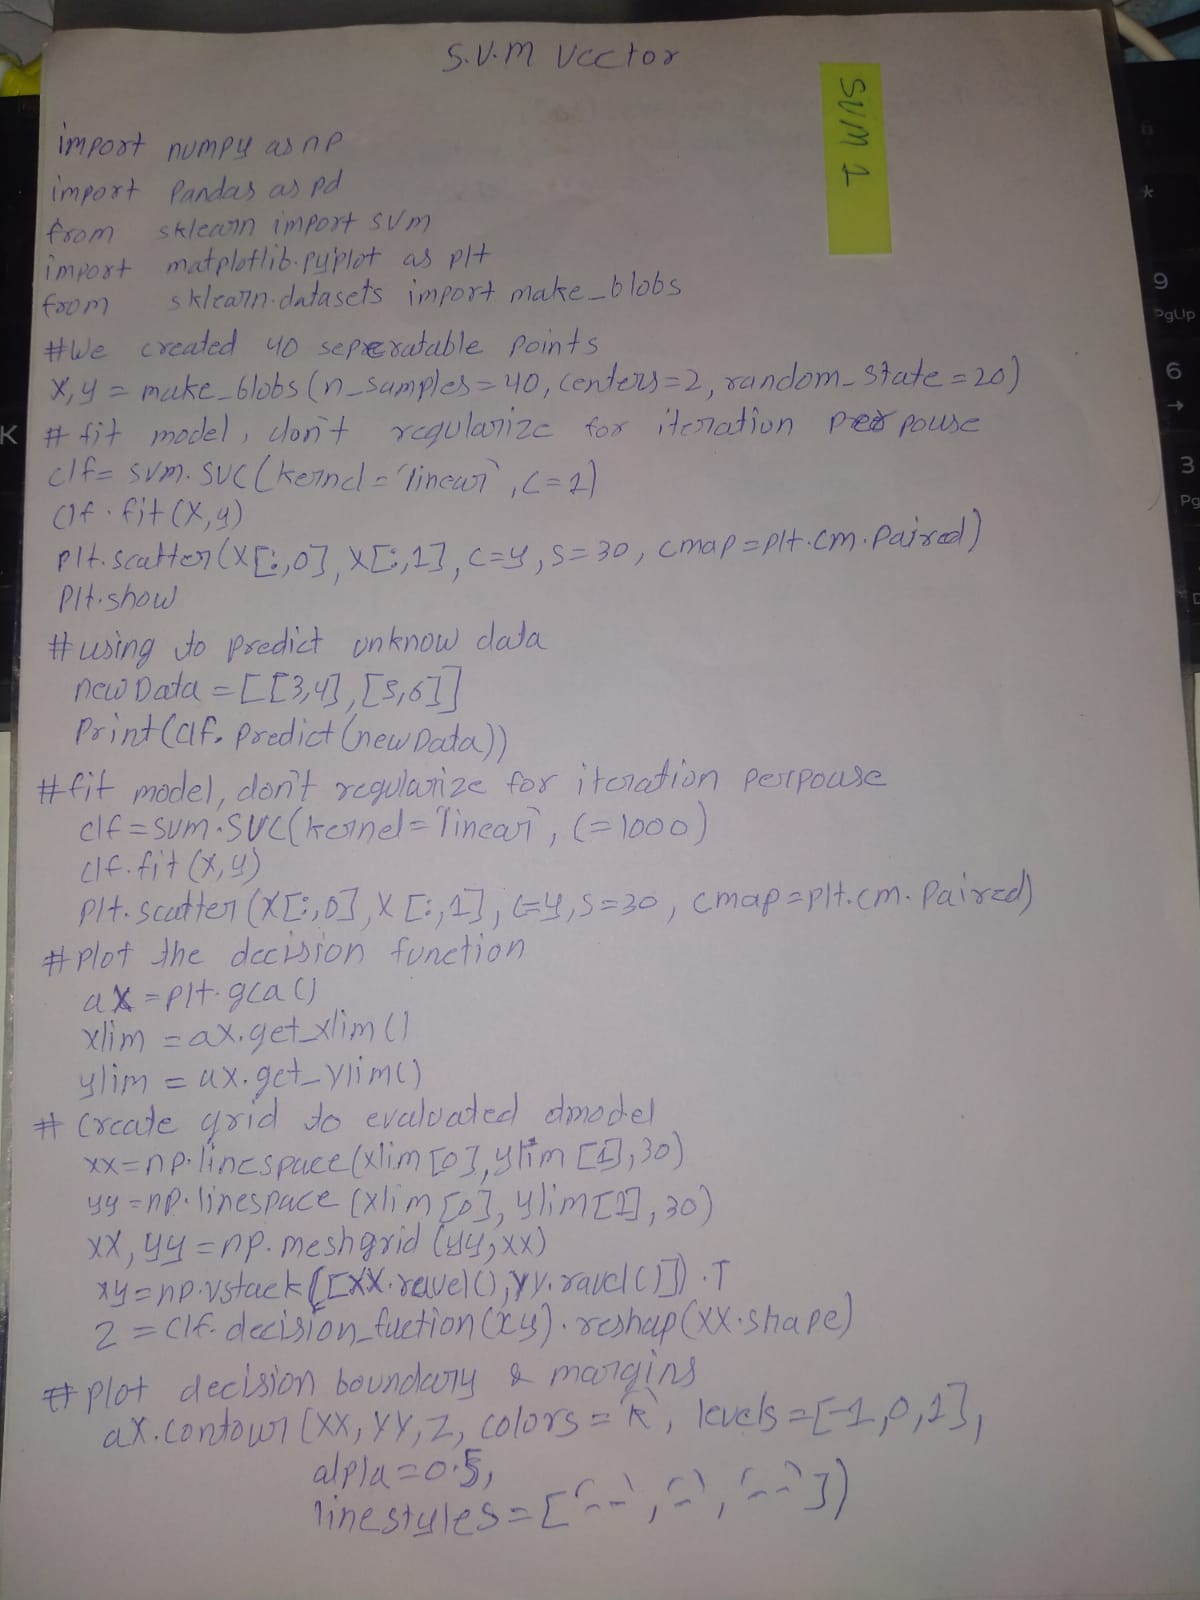 S.V.M Vector
SVM 1
import numpy as np
import Pandas as pd
from sklearn import SVM
import matplotlib.pyplot as plt
from sklearn.datasets import make_blobs
#We created 40 seperatable points
X,y = make_blobs(n_samples=40, centers=2, random_state=20)
# fit model, don't regularize for iteration pouse
clf= svm.SVC(kernel='linear', C=1)
Clf.fit(X,y)
plt.scatter(X[:,0], X[:,1], c=y, s=30, cmap=plt.cm.Paired)
Plt.show
#using to predict unknow data
newData=[[3,4],[5,6]]
Print(clf.predict(newData))
#fit model, don't regularize for iteration perpouse
clf=svm.SVC(kernel='linear', C=1000)
clf.fit(X,y)
plt.scatter(X[:,0],X[:,1], c=y,s=30, cmap=plt.cm.Paired)
#plot the decision function
ax=plt.gca()
xlim =ax.get_xlim()
ylim = ax.get_ylim()
# Create grid to evaluated dmodel
xx=np.linespace(xlim[0],ylim[1],30)
yy=np.linespace(xlim[0], ylim[1],30)
xx,yy=np.meshgrid(yy,xx)
xy=np.vstack([XX.ravel(),YY.ravel()]).T
Z=Clf.decision_fuction(xy).reshap(XX.shape)
# plot decision boundary & margins
ax.contour(XX,YY,Z, colors='k', levels=[-1,0,1],
alpla=0.5,
linestyles=['--','-','--'])
K
9
PgUp
6
3
Pg
*